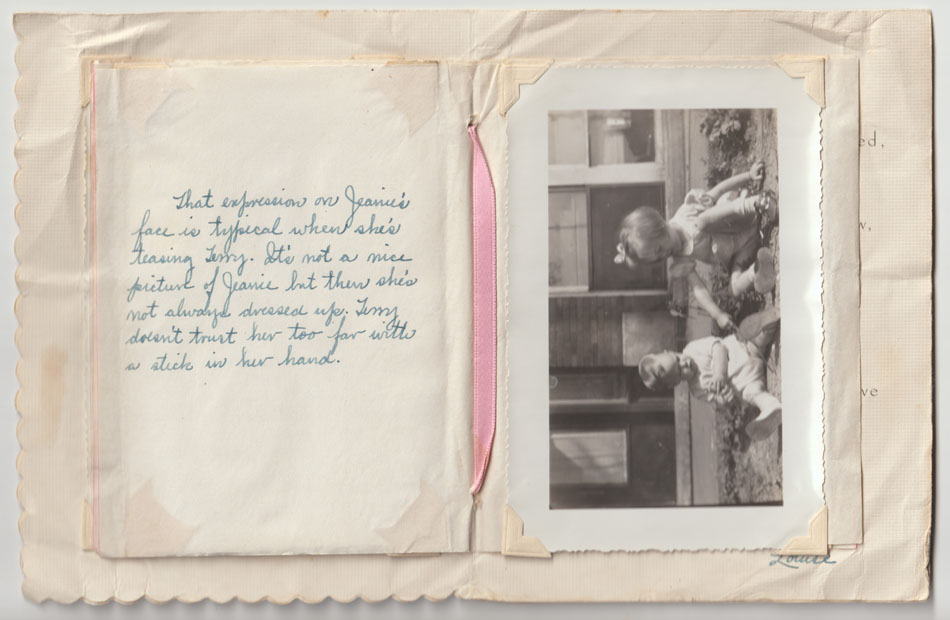 That expression on Jeanie's
face is typical when she's
teasing Terry. It's not a nice
picture of Jeanie but then she's
not always dressed up. Terry
doesn't trust her too far with
a stick in her hand.
ed,
w,
ve
Louise